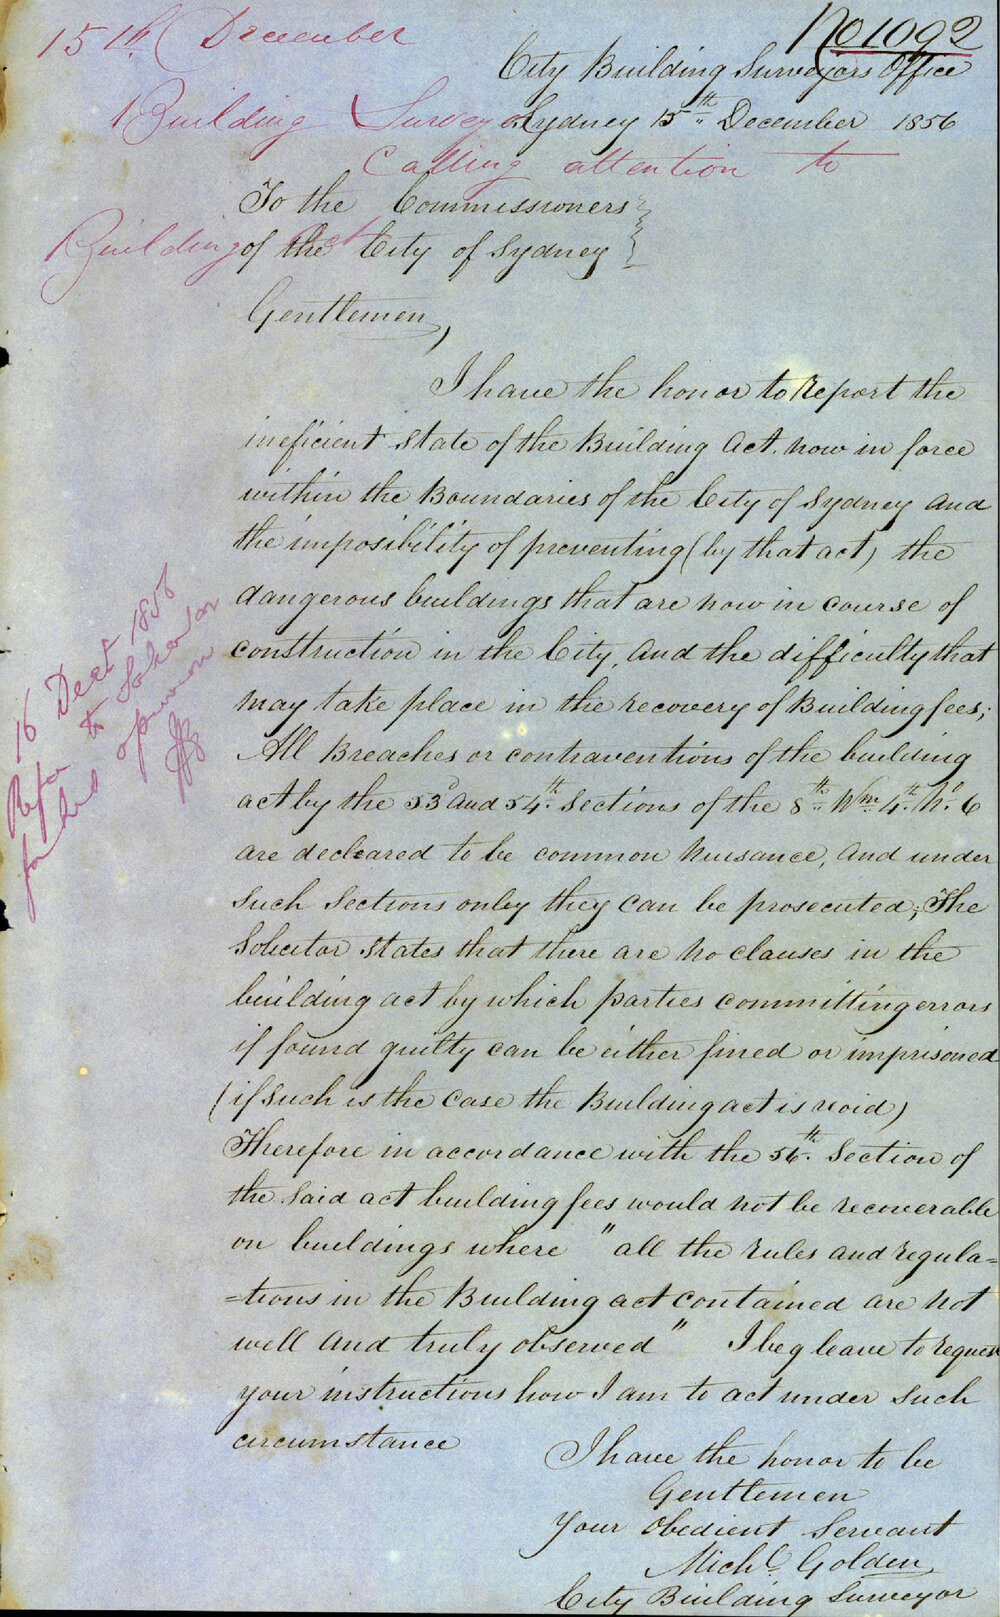 No 1092
15th December
City Building Surveyors Office
Building Surveyor
Sydney 15th December 1856
Calling attention to
To the Commissioners
Building act
of the City of Sydney
Gentlemen,
I have the honor to report the
ineficient state of the Building Act, now in force
within the Boundaries of the City of Sydney and
the imposibility of preventing (by that act) the
dangerous buildings that are now in course of
construction in the City, and the difficulty that
may take place in the recovery of Building fees;
All Breaches or contraventions of the building
act by the 53d and 54th Sections of the 8th Wm 4th No 6
are decleared to be common Nuisance, and under
such Sections onley they can be prosecuted; The
Solicitor states that there are no clauses in the
building act by which parties committing errors
if found guilty can be either fined or imprisoned
(if such is the case the Building act is void)
Therefore in accordance with the 56th Section of
the said act building fees would not be recoverable
on buildings where "all the rules and regula=
=tions in the Building act contained are not
well and truly observed" I beg leave to request
your instructions how I am to act under such
circumstance
I have the honor to be
Gentlemen
Your Obedient Servant
Michl Golden
City Building Surveyor
16 Decr 1856
Refer to Solicitor
for his opinion